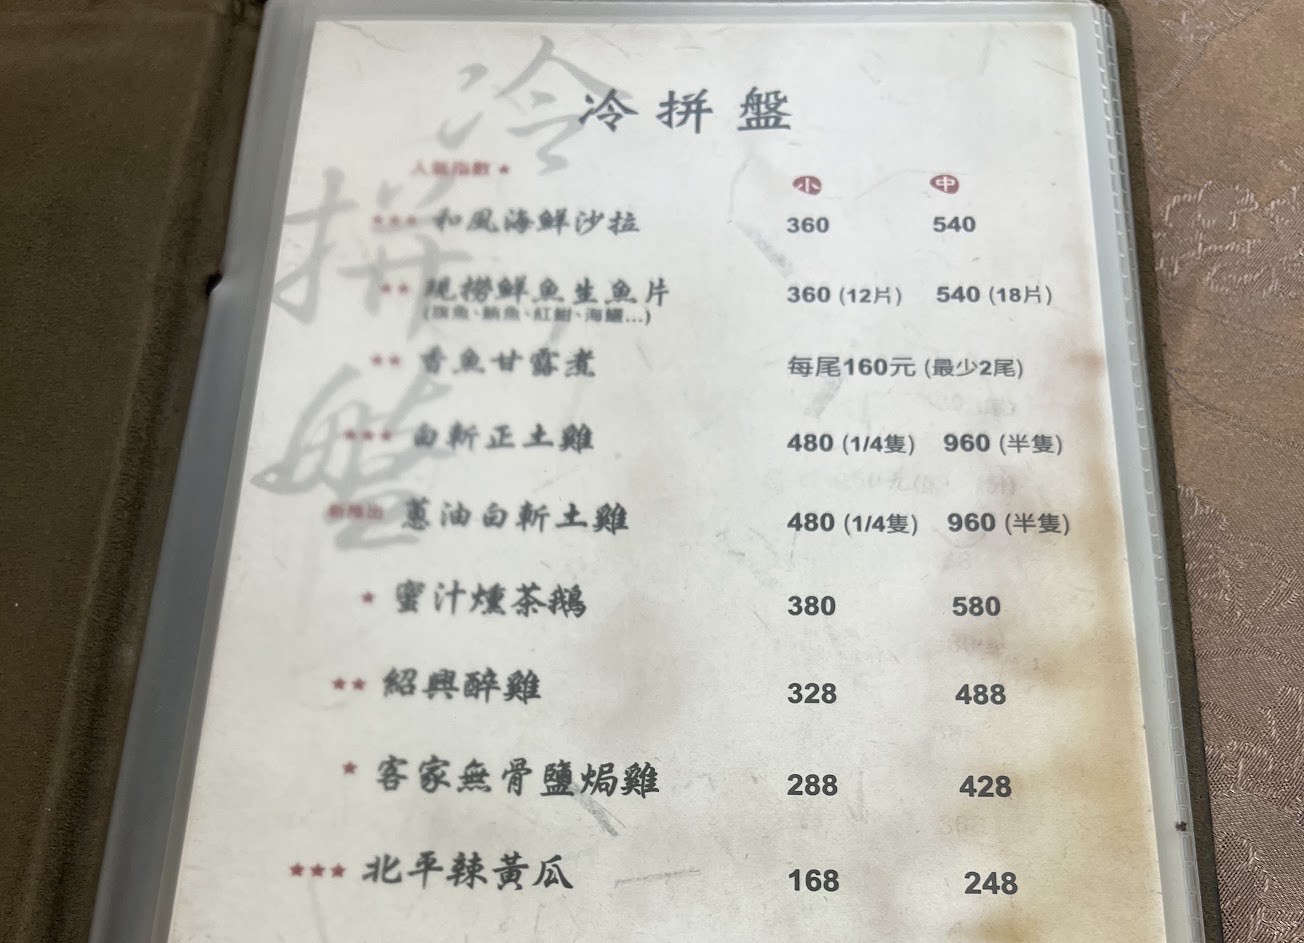 冷拼盤
冷拼盤
人氣指數 ★
小 中
★★★ 和風海鮮沙拉 360 540
★★ 現撈鮮魚生魚片 360 (12片) 540 (18片)
(旗魚、鮪魚、紅魽、海鱺...)
★★ 香魚甘露煮 每尾160元 (最少2尾)
★★★ 白斬正土雞 480 (1/4隻) 960 (半隻)
新推出 蔥油白斬土雞 480 (1/4隻) 960 (半隻)
★ 蜜汁燻茶鵝 380 580
★★ 紹興醉雞 328 488
★ 客家無骨鹽焗雞 288 428
★★★ 北平辣黃瓜 168 248